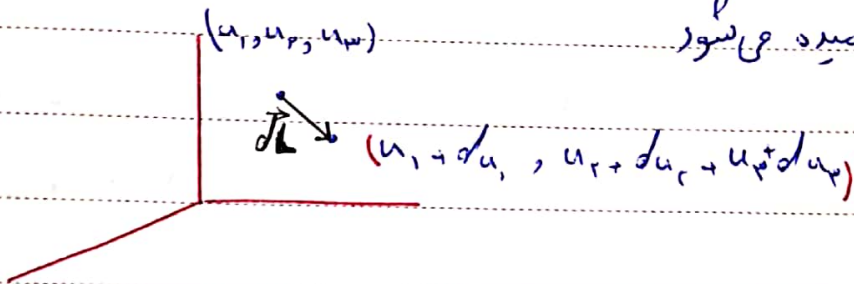 (u₁, u₂, u₃) می‌شود
dL
(u₁ + du₁ , u₂ + du₂ + u₃ + du₃)